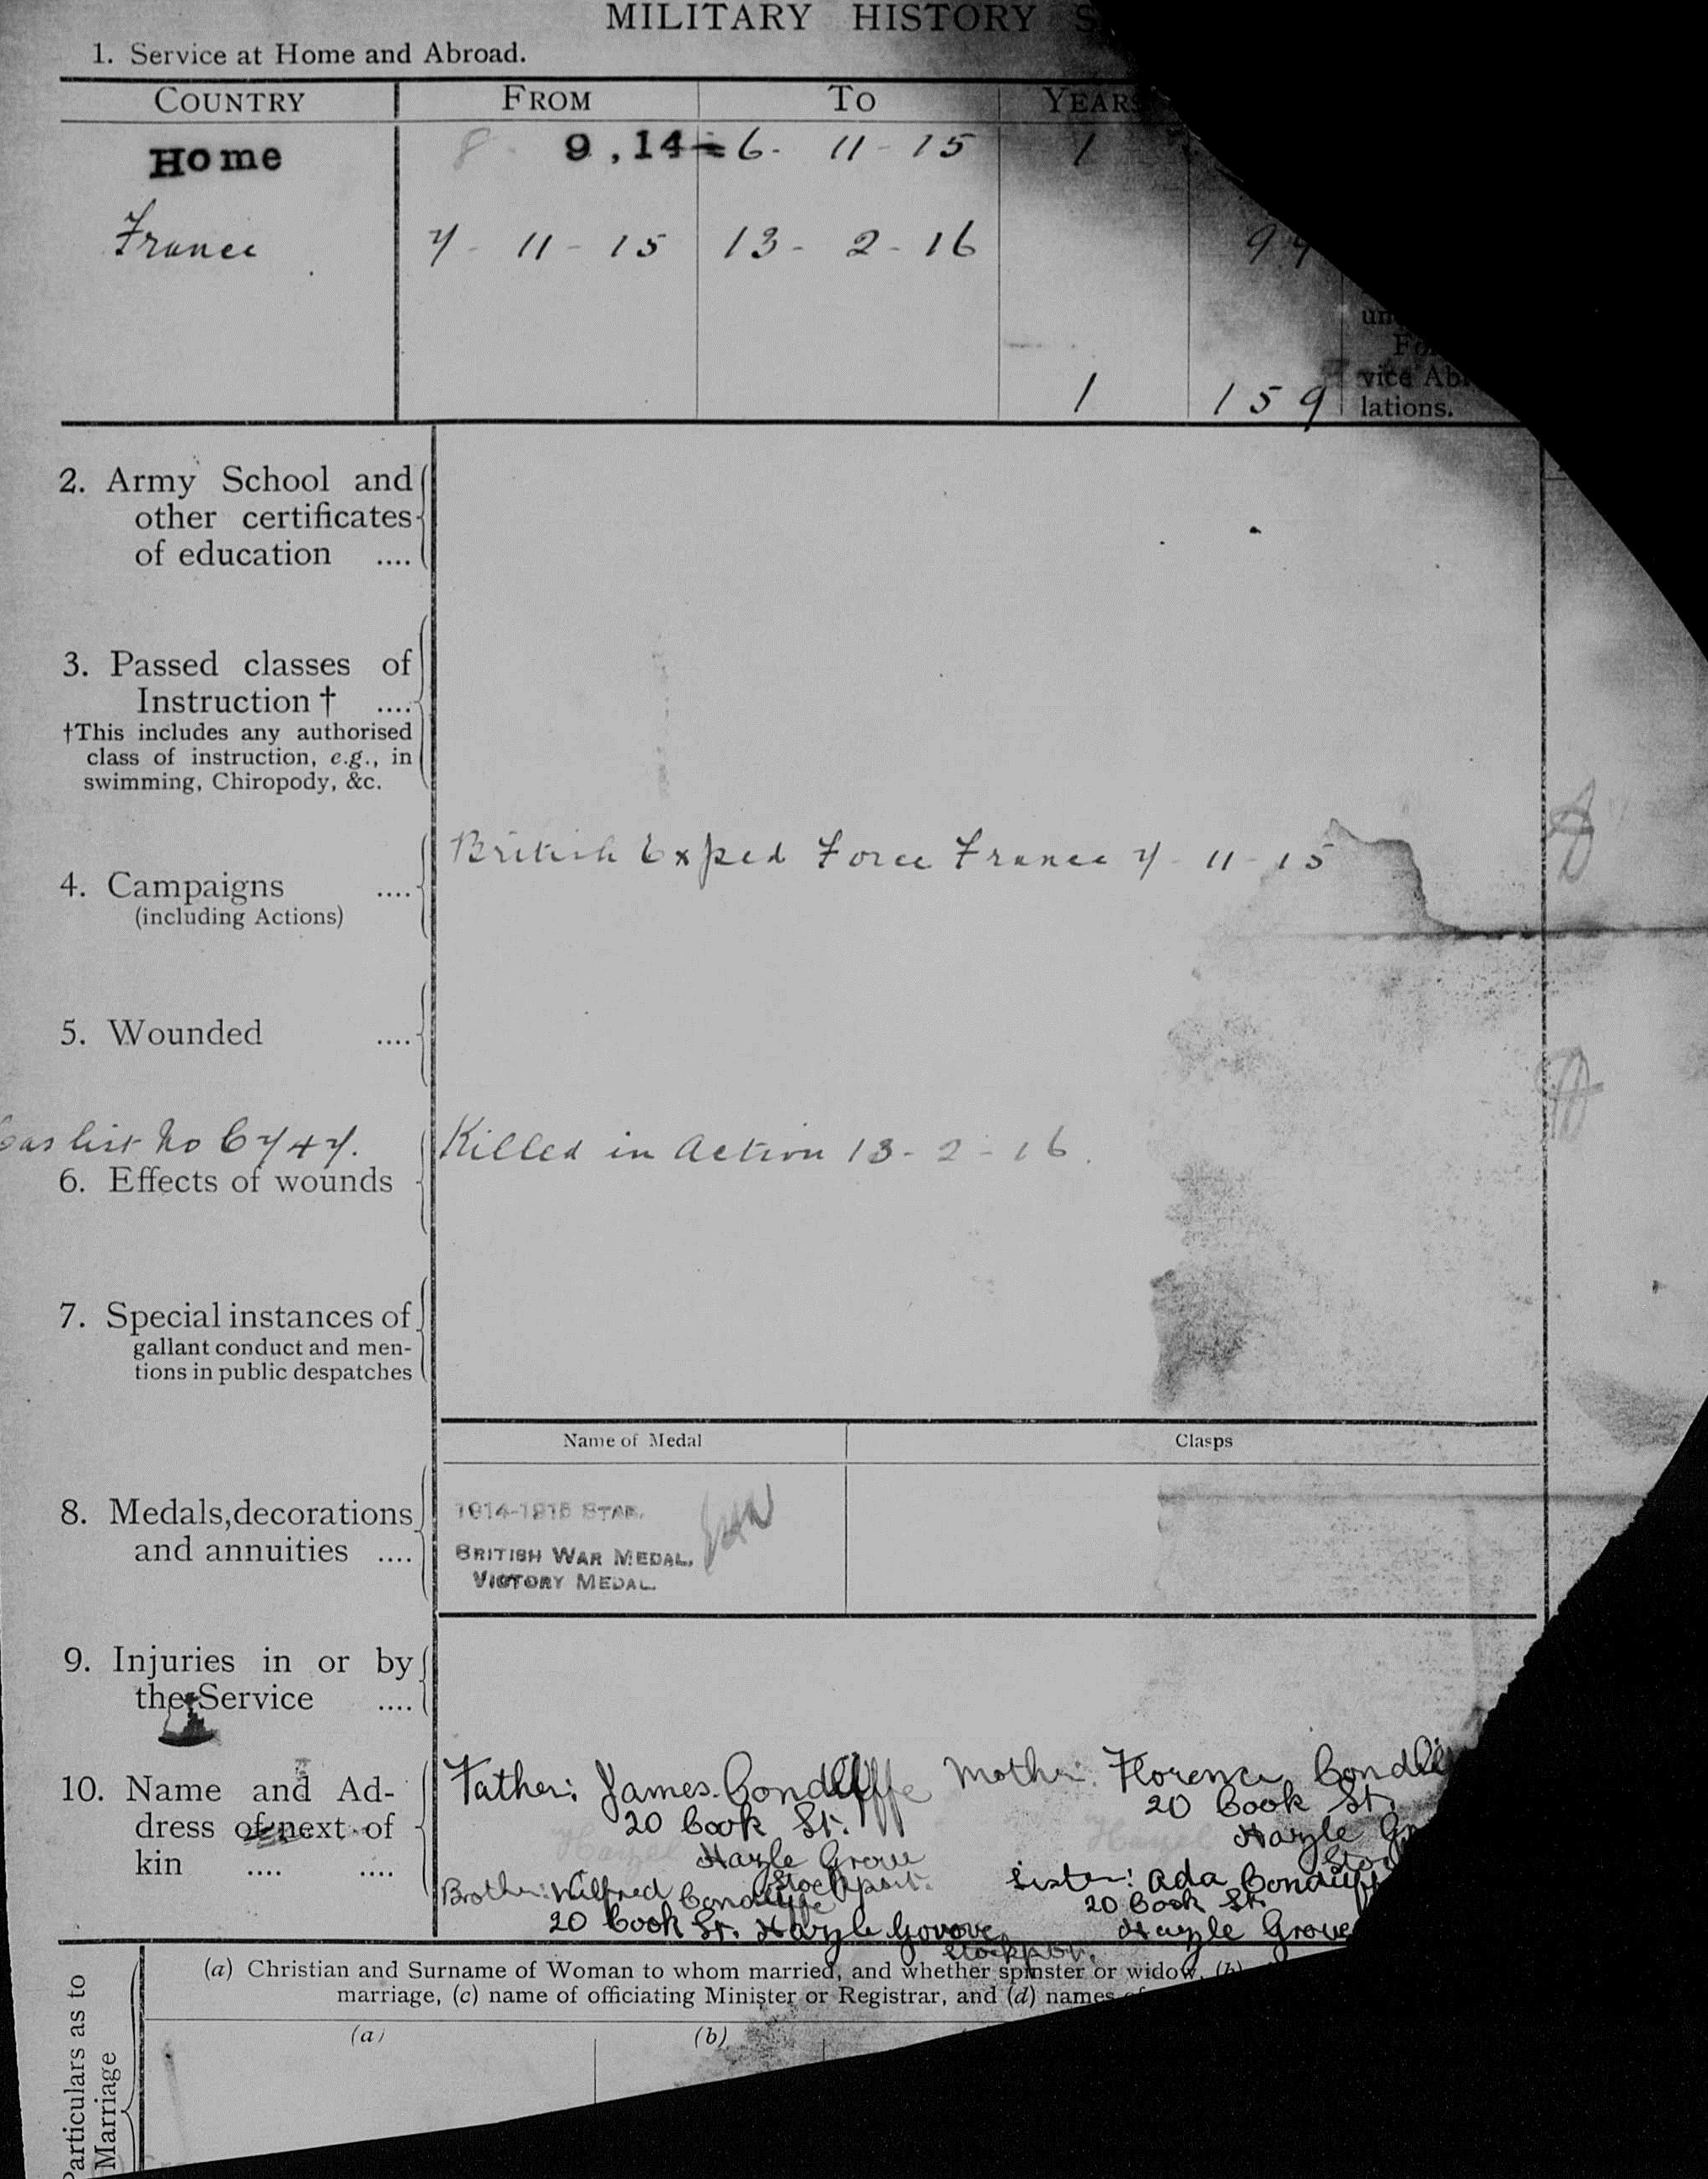 MILITARY HISTORY S
1. Service at Home and Abroad.
COUNTRY FROM TO YEARS
Home 8 . 9 . 14 = 6 - 11 - 15 1
France 7 - 11 - 15 13 - 2 - 16 99
un
Fo
vice Ab
1 159 lations.
2. Army School and
other certificates
of education ....
3. Passed classes of
Instruction † ....
†This includes any authorised
class of instruction, e.g., in
swimming, Chiropody, &c.
British Exped Force France 7 - 11 - 15
4. Campaigns ....
(including Actions)
5. Wounded ....
Cas list No 6747. Killed in Action 13 - 2 - 16.
6. Effects of wounds
7. Special instances of
gallant conduct and men-
tions in public despatches
Name of Medal Clasps
8. Medals, decorations
and annuities ....
1914-1915 STAR.
BRITISH WAR MEDAL.
VICTORY MEDAL.
9. Injuries in or by
the Service ....
10. Name and Ad-
dress of next of
kin .... ....
Father: James Condliffe
20 Cook St.
Hazle Grove
Stockport.
Mother: Florence Condli
20 Cook St.
Hazle Gr
Stoc
Brother: Wilfred Condliffe
20 Cook St. Hazle Govove
Stockport.
Sister: Ada Condliff
20 Cook St.
Hazle Grove
Particulars as to
Marriage
(a) Christian and Surname of Woman to whom married, and whether spinster or widow, (b)
marriage, (c) name of officiating Minister or Registrar, and (d) names of
(a) (b)